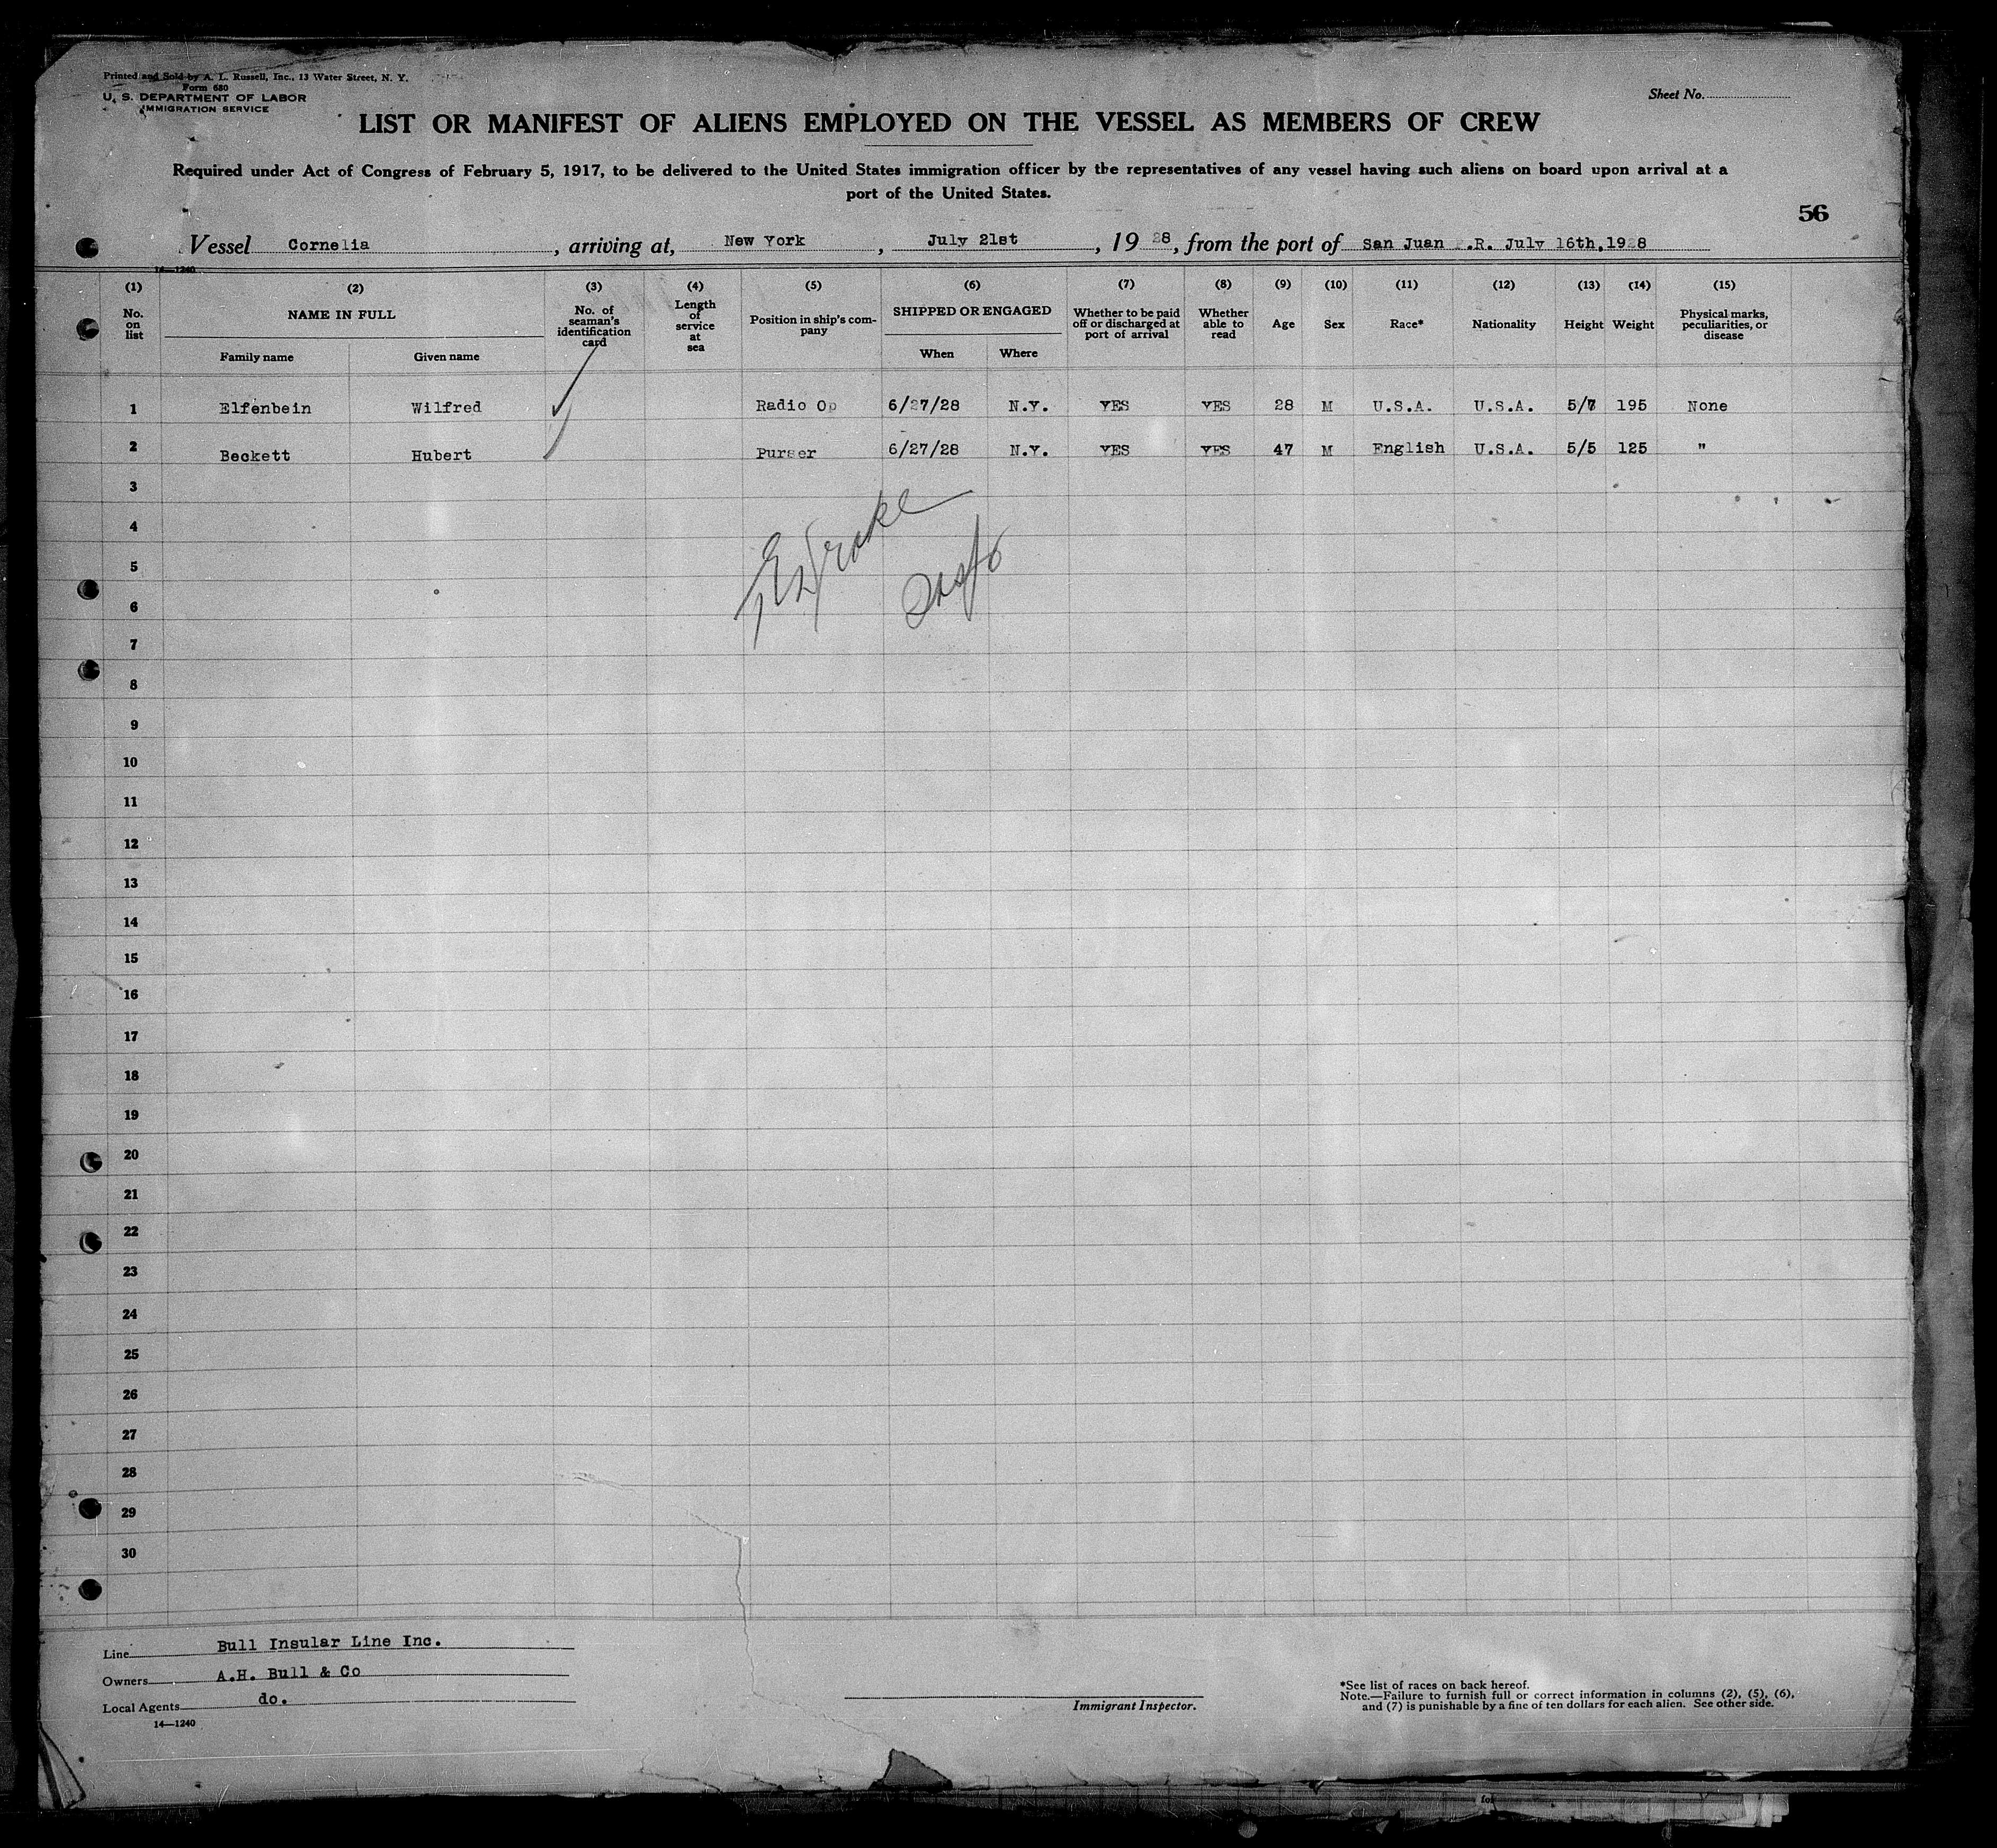 Printed and Sold by A. L. Russell, Inc., 13 Water Street, N. Y.
Form 680
U. S. DEPARTMENT OF LABOR
IMMIGRATION SERVICE
Sheet No.
LIST OR MANIFEST OF ALIENS EMPLOYED ON THE VESSEL AS MEMBERS OF CREW
Required under Act of Congress of February 5, 1917, to be delivered to the United States immigration officer by the representatives of any vessel having such aliens on board upon arrival at a
port of the United States.
56
Vessel Cornelia, arriving at, New York, July 21st, 1928, from the port of San Juan P.R. July 16th, 1928
14—1240
(1) (2) (3) (4) (5) (6) (7) (8) (9) (10) (11) (12) (13) (14) (15)
No. on list
NAME IN FULL
Family name Given name
No. of seaman's identification card
Length of service at sea
Position in ship's company
SHIPPED OR ENGAGED
When Where
Whether to be paid off or discharged at port of arrival
Whether able to read
Age
Sex
Race*
Nationality
Height
Weight
Physical marks, peculiarities, or disease
1 Elfenbein Wilfred Radio Op 6/27/28 N.Y. YES YES 28 M U.S.A. U.S.A. 5/7 195 None
2 Beckett Hubert Purser 6/27/28 N.Y. YES YES 47 M English U.S.A. 5/5 125 "
3
4
5
6
7
8
9
10
11
12
13
14
15
16
17
18
19
20
21
22
23
24
25
26
27
28
29
30
Line Bull Insular Line Inc.
Owners A.H. Bull & Co
Local Agents do.
14—1240
Immigrant Inspector.
*See list of races on back hereof.
Note.—Failure to furnish full or correct information in columns (2), (5), (6),
and (7) is punishable by a fine of ten dollars for each alien. See other side.